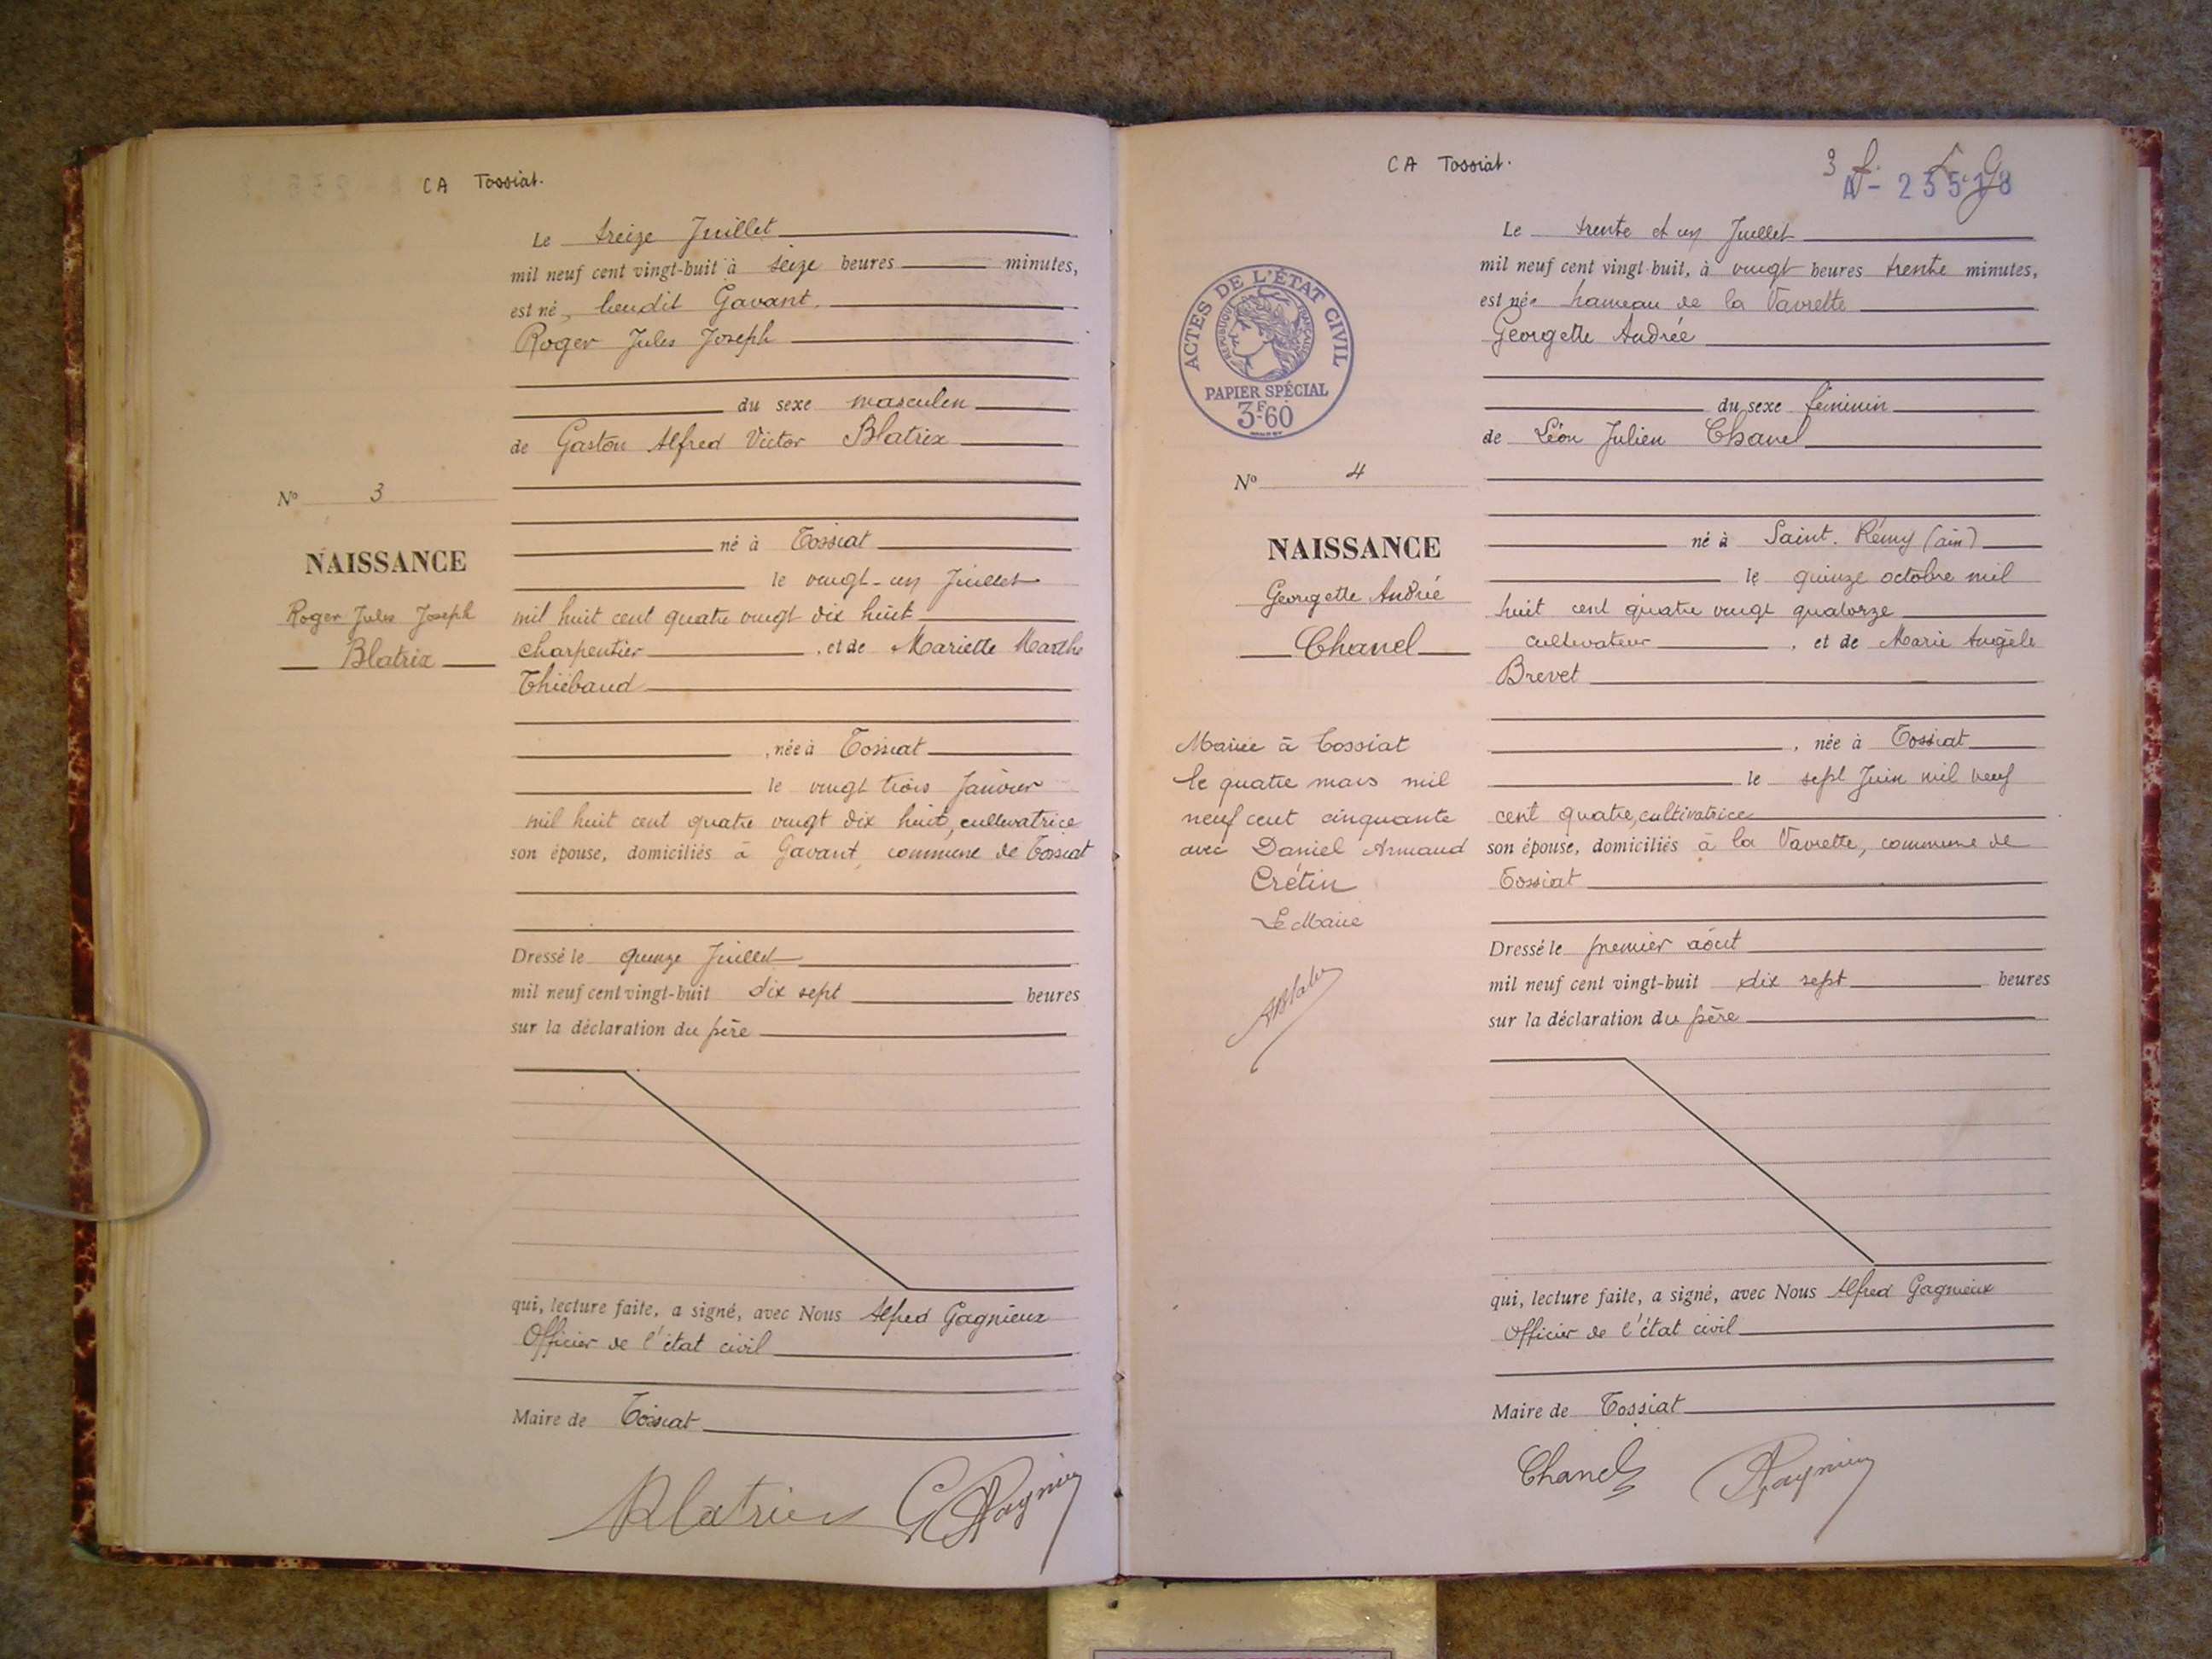 CA Tossiat.
Le treize Juillet
mil neuf cent vingt-huit à seize heures minutes,
est né, lieudit Gavant,
Roger Jules Joseph
du sexe masculin
de Gaston Alfred Victor Blatrix
N° 3
NAISSANCE
Roger Jules Joseph
Blatrix
né à Tossiat
le vingt-un Juillet
mil huit cent quatre vingt dix huit
charpentier, et de Mariette Marthe
Thiébaud
, née à Tossiat
le vingt trois Janvier
mil huit cent quatre vingt dix huit, cultivatrice
son épouse, domiciliés à Gavant, commune de Tossiat
Dressé le quinze Juillet
mil neuf cent vingt-huit dix sept heures
sur la déclaration du père
qui, lecture faite, a signé, avec Nous Alfred Gagnieux
Officier de l'état civil
Maire de Tossiat
Blatrix
CA Tossiat.
3 f.
ACTES DE L'ÉTAT CIVIL
RÉPUBLIQUE FRANÇAISE
PAPIER SPÉCIAL
3F60
Le trente et un Juillet
mil neuf cent vingt-huit, à vingt heures trente minutes,
est née hameau de la Vavrette
Georgette Andrée
du sexe féminin
de Léon Julien Chanel
N° 4
NAISSANCE
Georgette Andrée
Chanel
né à Saint. Rémy (ain)
le quinze octobre mil
huit cent quatre vingt quatorze
cultivateur, et de Marie Angèle
Brevet
, née à Tossiat
le sept Juin mil neuf
cent quatre, cultivatrice
son épouse, domiciliés à la Vavrette, commune de
Tossiat
Mariée à Tossiat
le quatre mars mil
neuf cent cinquante
avec Daniel Armand
Crétin
Le Maire
Dressé le premier août
mil neuf cent vingt-huit dix sept heures
sur la déclaration du père
qui, lecture faite, a signé, avec Nous Alfred Gagnieux
Officier de l'état civil
Maire de Tossiat
Chanel